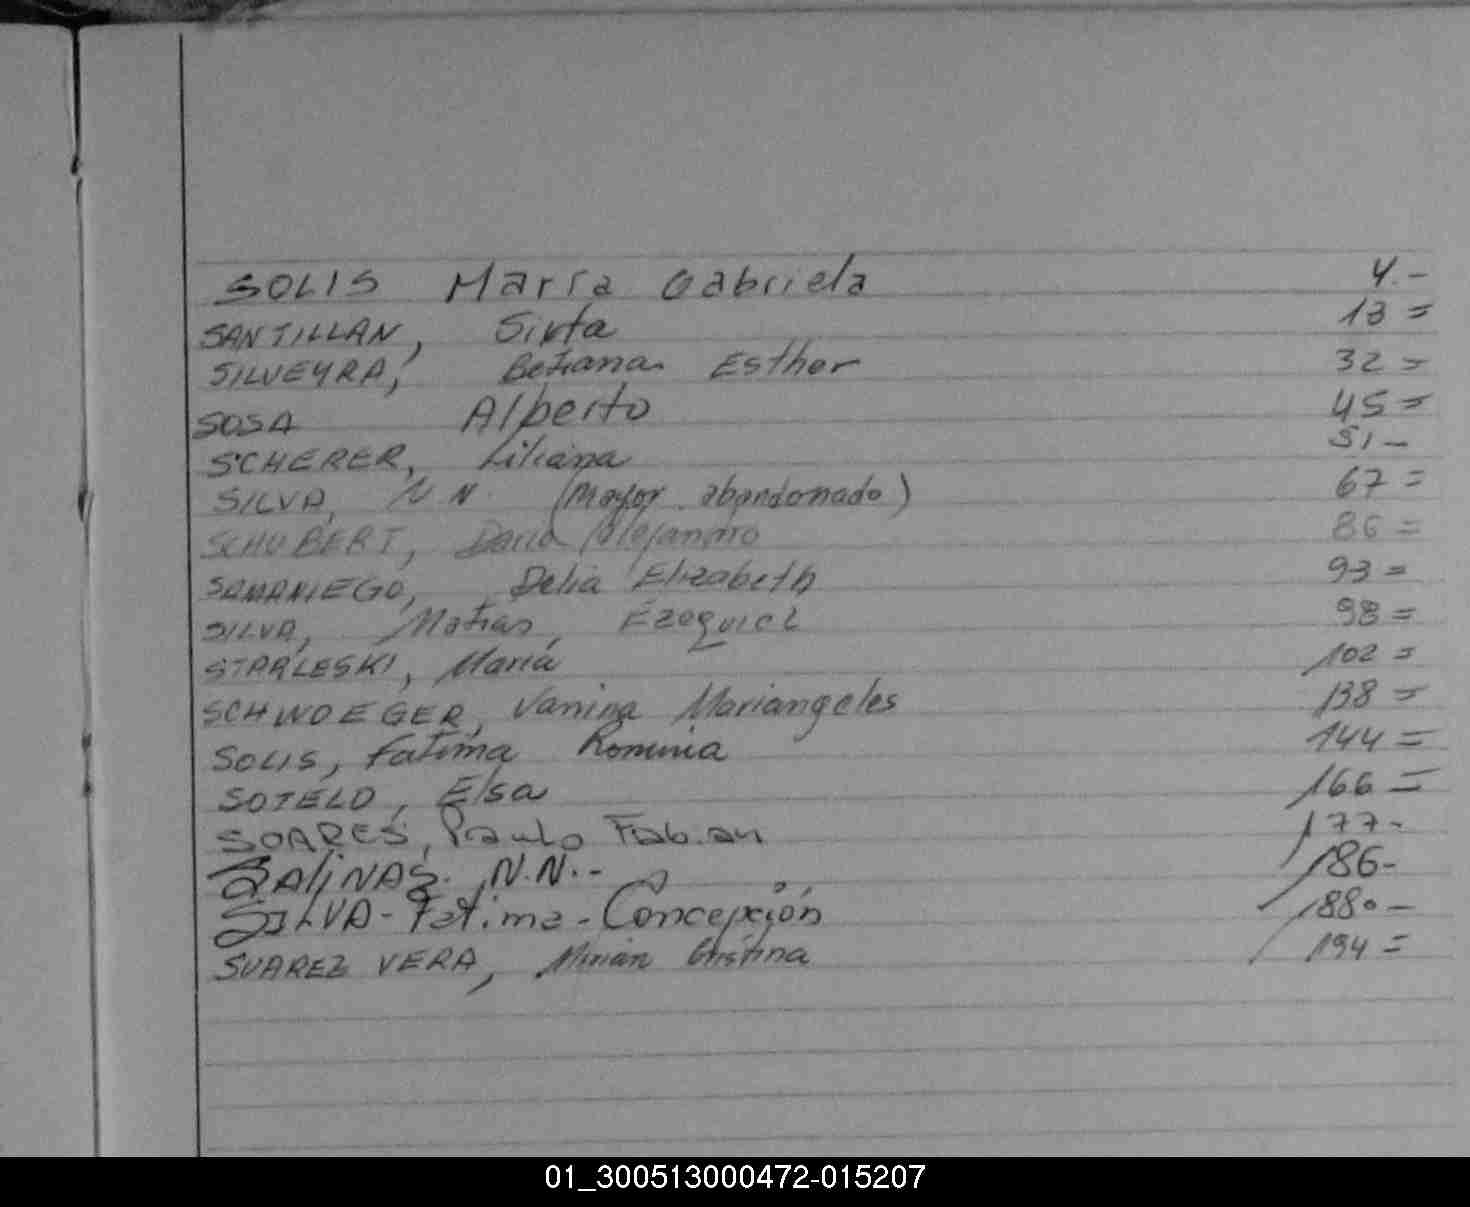 SOLIS María Gabriela 4.-
SANTILLAN, Sixta 13=
SILVEYRA, Betiana Esther 32=
SOSA Alberto 45=
SCHERER, Liliana 51-
SILVA, N N. (Mayor abandonado) 67=
SCHUBERT, Dario Alejandro 86=
SAMANIEGO, Delia Elizabeth 93=
SILVA, Matias, Ezequiel 98=
STARLESKI, Maria 102=
SCHWOEGER, Vanina Mariangeles 138=
SOLIS, Fatima Romina 144=
SOTELO, Elsa 166=
SOARES, Paulo Fabian 177-
SALiNAS. N.N.- 186-
SILVA-Fatima-Concepción 188.-
SUAREZ VERA, Mirian Cristina 194=
01_300513000472-015207